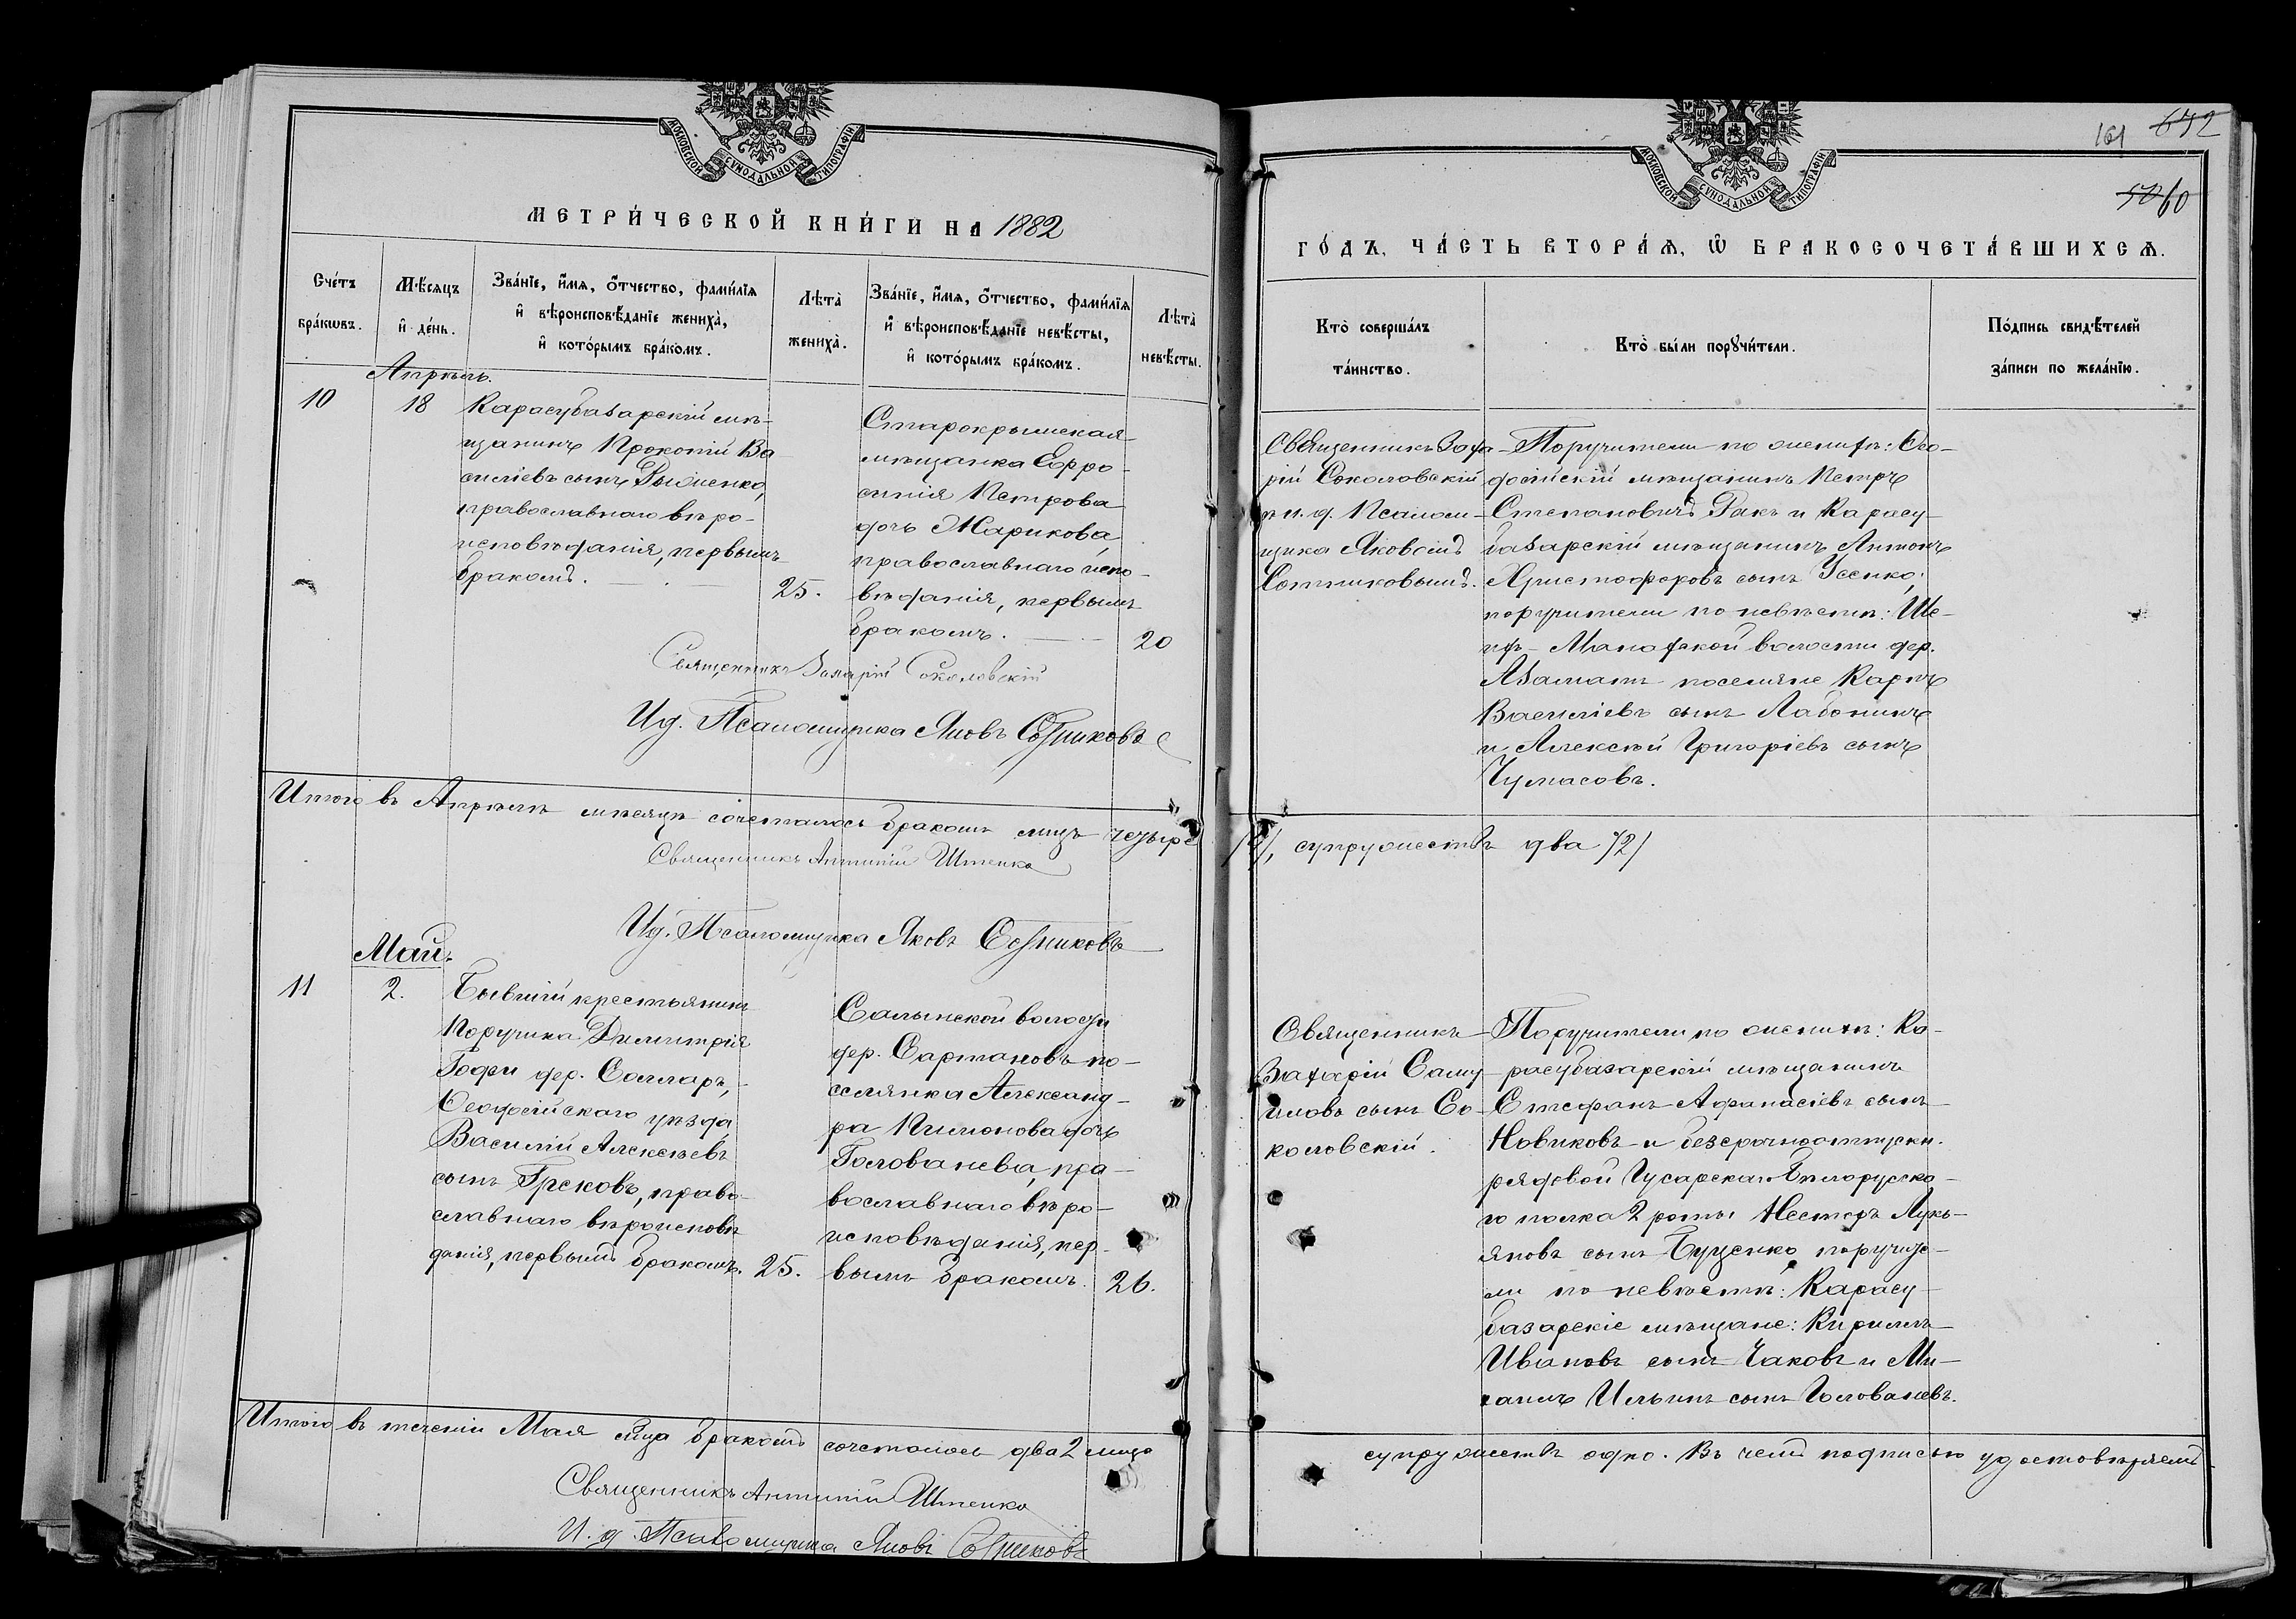 МОСКОВСКОЙ СѴНОДАЛЬНОЙ ТИПОГРАФІИ
МЕТРИ́ЧЕСКОЙ КНИ́ГИ НА 1882
Сче́тъ
бра́кѡвъ.
Мѣ́сяцъ
и҆ де́нь.
Зва́нїе, и҆́мѧ, ѻ҆́тчество, фами́лїѧ
и҆ вѣроисповѣ́данїе жениха̀,
и҆ кото́рымъ бра́комъ.
Лѣта̀
жениха̀.
Зва́нїе, и҆́мѧ, ѻ҆́тчество, фами́лїѧ
и҆ вѣроисповѣ́данїе невѣ́сты,
и҆ кото́рымъ бра́комъ.
Лѣта̀
невѣ́сты.
Апрѣль.
10
18
Карасубазарскій мѣ-
щанинъ Прокопій Ва-
силіевъ сынъ
православнаго вѣро-
исповѣданія, первымъ
бракомъ.
25.
Старокрымская
мѣщанка Евфро-
синія Петрова
дочь Жарикова,
православнаго испо-
вѣданія, первымъ
бракомъ.
20
Священникъ Захарій Соколовскій
И.д. Псаломщика Яковъ Сотниковъ
Итого въ Апрѣлѣ мѣсяцѣ сочеталось бракомъ лицъ четыре
Священникъ Антипій Штенко
И.д. Псаломщика Яковъ Сотниковъ
Май.
11
2.
Бывшій крестьянинъ
Поручика Димитрія
дер. Салларъ,
Ѳеодосійскаго уѣзда
Василій Алексѣевъ
сынъ Грековъ, право-
славнаго вѣроисповѣ
данія, первымъ бракомъ.
25.
Салынской волости
дер. Сартановъ по-
селянка Александ-
ра Пименова дочь
Голованева, пра-
вославнаго вѣро-
исповѣданія, пер-
вымъ бракомъ.
26.
Итого въ теченіи Мая м-ца бракомъ сочеталось два 2 лица
Священникъ Антипій Штенко
И. д. Псаломщика Яковъ Сотниковъ
МОСКОВСКОЙ СѴНОДАЛЬНОЙ ТИПОГРАФІИ
161 652
60
ГО́ДЪ, ЧА́СТЬ ВТОРА́Ѧ, Ѡ҆ БРАКОСОЧЕТА́ВШИХСѦ.
Кто̀ соверша́лъ
та́инство.
Кто̀ бы́ли порꙋчи́тели.
По́дпись свидѣ́телей
за́писи по жела́нїю.
Священникъ Заха-
рій Соколовскій
и. д. Псалом-
щика Яковомъ
Сотниковымъ.
Поручители по женихѣ: Ѳео-
досійскій мѣщанинъ Петръ
Степановичъ Ракъ и Карасу-
базарскій мѣщанинъ Антонъ
Христофоровъ сынъ Усенко;
поручители по невѣстѣ: Ше-
ихъ-Монахской волости дер.
Азаматъ поселяне Карпъ
Василіевъ сынъ Лабонинъ
и Алексѣй Григоріевъ сынъ
Чумасовъ.
/4/, супружествъ два /2/
Священникъ
Захарій Саму-
иловъ сынъ Со-
коловскій.
Поручители по женихѣ: Ка-
расубазарскій мѣщанинъ
Стефанъ Афанасіевъ сынъ
Новиковъ и безсрочноотпускн.
рядовой Гусарскаго Бѣлорусска-
го полка 2 роты Несторъ Лукь-
яновъ сынъ Буценко поручите-
ли по невѣстѣ: Карасу-
базарскіе мѣщане: Кириллъ
Ивановъ сынъ Чаковъ и Ми-
хаилъ Ильинъ сынъ Голованевъ.
супружествъ одно. Въ чемъ подписью удостовѣряемъ